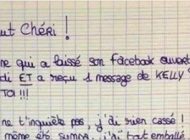 ut Chéri !
ne qui a laissé son Facebook ouvert
di ET a reçu 1 message de KELLY
TO !!!
ne t'inquiète pas, j'ai rien cassé !
même été sympa, j'ai tout emballé